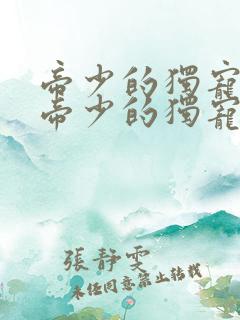 帝少的獨寵
帝少的獨寵
張靜雯
未經同意禁止轉載